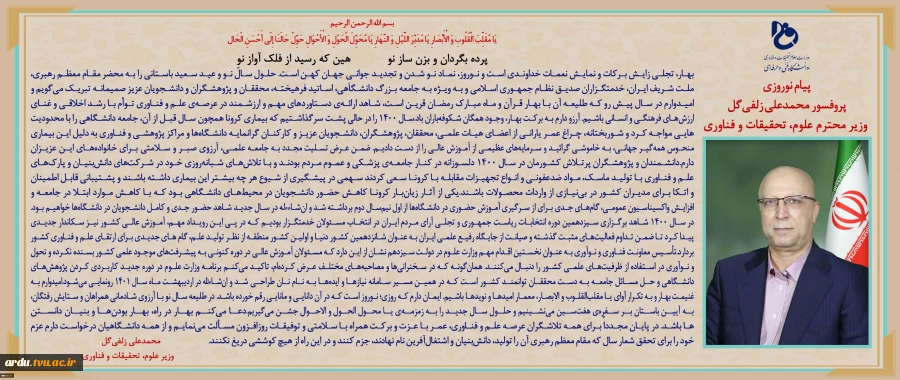 بسم الله الرحمن الرحیم
یَا مُقَلِّبَ الْقُلُوبِ وَ الْأَبْصَارِ یَا مُدَبِّرَ اللَّیْلِ وَ النَّهَارِ یَا مُحَوِّلَ الْحَوْلِ وَ الْأَحْوَالِ حَوِّلْ حَالَنَا إِلَی أَحْسَنِ الْحَالِ
هین که رسید از فلک آواز نو پرده بگردان و بزن ساز نو
بهار، تجلی زایش برکات و نمایش نعمات خداوندی است و نوروز، نماد نو شدن و تجدید جوانی جهان کهن است. حلول سال نو و عید سعید باستانی را به محضر مقام معظم رهبری،
ملت شریف ایران، خدمتگزاران صدیق نظام جمهوری اسلامی و به ویژه به جامعه بزرگ دانشگاهی، اساتید فرهیخته، محققان و پژوهشگران و دانشجویان عزیز صمیمانه تبریک می‌گویم و
امیدوارم در سال پیش رو که طلیعه آن با بهار قرآن و ماه مبارک رمضان قرین است، شاهد ارائه‌ی دستاوردهای مهم و ارزشمند در عرصه‌ی علم و فناوری توأم با رشد اخلاقی و غنای
ارزش‌های فرهنگی و انسانی باشیم. آرزو دارم به برکت بهار، وجود همگان شکوفه‌باران باد. سال ۱۴۰۰ را در حالی پشت سر گذاشتیم که بیماری کرونا همچون سال قبل از آن، جامعه دانشگاهی را با محدودیت
هایی مواجه کرد و شوربختانه، چراغ عمر یارانی از اعضای هیات علمی، محققان، پژوهشگران، دانشجویان عزیز و کارکنان گرانمایه دانشگاه‌ها و مراکز پژوهشی و فناوری به دلیل این بیماری
منحوس همه‌گیر جهانی، به خاموشی گرائید و سرمایه‌های عظیمی از آموزش عالی را از دست دادیم. ضمن عرض تسلیت مجدد به جامعه علمی، آرزوی صبر و سلامتی برای خانواده‌های این عزیزان
دارم. دانشمندان و پژوهشگران پرتلاش کشورمان در سال ۱۴۰۰ دلسوزانه در کنار جامعه‌ی پزشکی و عموم مردم بودند و با تلاش‌های شبانه‌روزی خود در شرکت‌های دانش‌بنیان و پارک‌های
علم و فناوری با تولید ماسک، مواد ضدعفونی و انواع تجهیزات مقابله با کرونا سعی کردند سهمی در پیشگیری از شیوع هر چه بیشتر این بیماری داشته باشند و پشتیبانی قابل اطمینان
و اتکا برای مدیران کشور در بی‌نیازی از واردات محصولات باشند. یکی از آثار زیان‌بار کرونا کاهش حضور دانشجویان در محیط‌های دانشگاهی بود که با کاهش موارد ابتلا در جامعه و
افزایش واکسیناسیون عمومی، گام‌های جدی برای از سرگیری آموزش حضوری در دانشگاه‌ها از اول نیم‌سال دوم برداشته شد و ان‌شاءالله در سال جدید شاهد حضور جدی و کامل دانشجویان در دانشگاه‌ها خواهیم بود.
در سال ۱۴۰۰ شاهد برگزاری سیزدهمین دوره انتخابات ریاست جمهوری و تجلی آرای مردم ایران در انتخاب مسئولان خدمتگزار بودیم که در پی این رویداد مهم، آموزش عالی کشور نیز سکاندار جدیدی
پیدا کرد تا ضمن تداوم فعالیت‌های مثبت گذشته و صیانت از جایگاه رفیع علمی ایران به عنوان شانزدهمین کشور دنیا و اولین کشور منطقه از نظر تولید علم، گام های جدیدی برای ارتقای علم و فناوری کشور
بردارد. تأسیس معاونت فناوری و نوآوری به عنوان نخستین اقدام مهم وزارت علوم در دولت سیزدهم نشان از این دارد که مسئولان آموزش عالی در دوره کنونی به پیشرفت‌های موجود علمی کشور بسنده نکرده و تحول
و نوآوری در استفاده از ظرفیت‌های علمی کشور را دنبال می‌کنند. همان‌گونه که در سخنرانی‌ها و مصاحبه‌های مختلف عرض کرده‌ام، تاکید می‌کنم برنامه وزارت علوم در دوره جدید کاربردی کردن پژوهش‌های
دانشگاهی و حل مسائل جامعه به دست محققان توانمند کشور است که در همین مسیر سامانه نیازها و ایده‌ها به نام نان طراحی شد و ان‌شاالله در اردیبهشت ماه سال ۱۴۰۱ رونمایی می‌شود. امیدوارم به
غنیمت بهار و به تکرار آوای یا مقلب‌القلوب و الابصار، معمار امیدها و نویدها باشیم. ایمان دارم که روزی نوروز است که در آن دانایی و مانایی رقم خورده باشد. در طلیعه سال نو با آرزوی شادمانی همراهان و ستایش رفتگان،
به آیین باستان بر سفره‌ی هفت‌سین می‌نشینیم و حلول سال جدید را به زمزمه‌ی یا محول الحول و الاحوال جشن می‌گیریم. دعا می‌کنم بهار در راه، بهار بودن‌ها و بنیان دانستن
ها باشد. در پایان مجددا برای همه تلاشگران عرصه علم و فناوری، عمر با عزت و برکت همراه با سلامتی و توفیقات روزافزون مسألت می‌نمایم و از همه دانشگاهیان درخواست دارم عزم
خود را برای تحقق شعار سال که مقام معظم رهبری آن را تولید، دانش‌بنیان و اشتغال‌آفرین نام نهادند، جزم کنند و در این راه از هیچ کوششی دریغ نکنند.
محمدعلی زلفی گل
وزیر علوم، تحقیقات و فناوری
وزارت علوم، تحقیقات و فناوری
دانشگاه فنی و حرفه‌ای
پیام نوروزی
پروفسور محمدعلی زلفی گل
وزیر محترم علوم، تحقیقات و فناوری
ardu.tvu.ac.ir